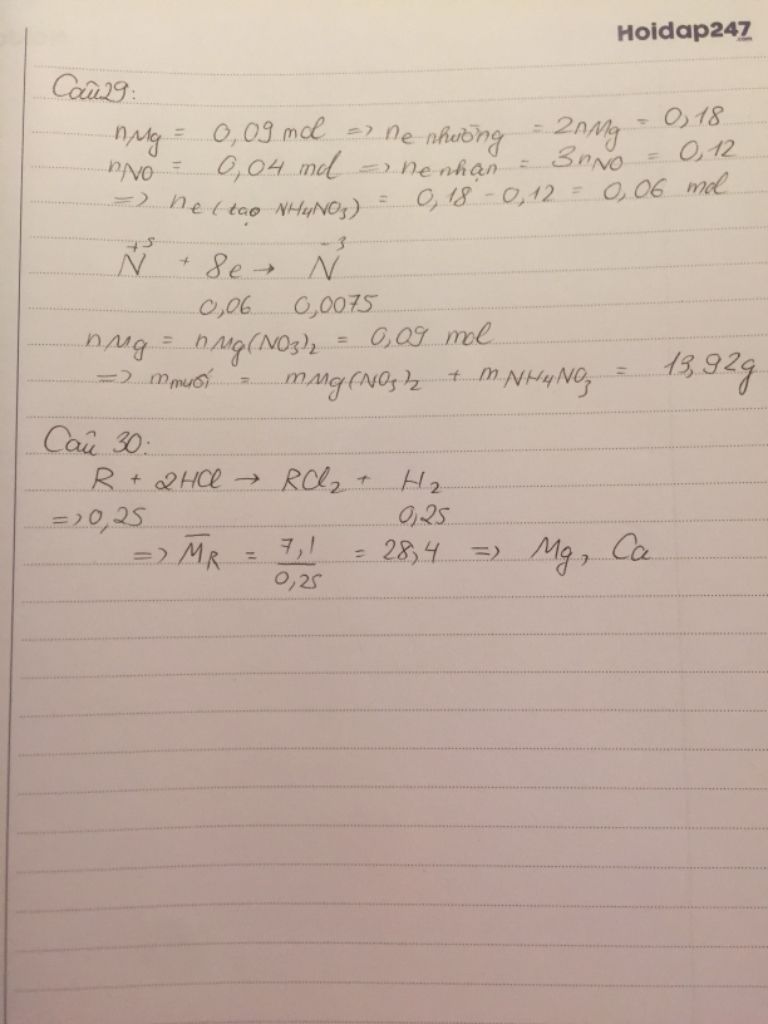 Hoidap247
.com
Câu 29:
nMg = 0,09 mol => ne nhường = 2nMg = 0,18
nNO = 0,04 mol => ne nhận = 3nNO = 0,12
=> ne (tạo NH4NO3) = 0,18 - 0,12 = 0,06 mol
+5 -3
N + 8e → N
0,06 0,0075
nMg = nMg(NO3)2 = 0,09 mol
=> mmuối = mMg(NO3)2 + mNH4NO3 = 13,92g
Câu 30:
R + 2HCl → RCl2 + H2
=> 0,25 0,25
=> M̅R = 7,1/0,25 = 28,4 => Mg, Ca